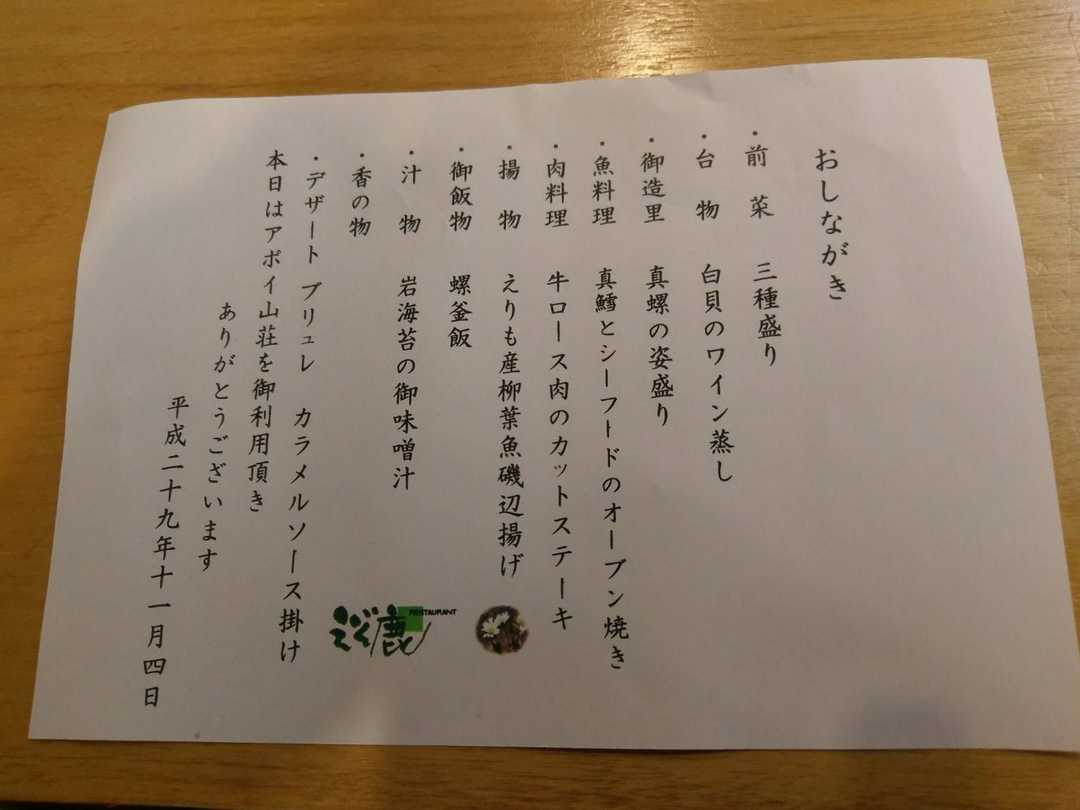 おしながき
・前菜 三種盛り
・台物 白貝のワイン蒸し
・御造里 真螺の姿盛り
・魚料理 真鱈とシーフードのオーブン焼き
・肉料理 牛ロース肉のカットステーキ
・揚物 えりも産柳葉魚磯辺揚げ
・御飯物 螺釜飯
・汁物 岩海苔の御味噌汁
・香の物
・デザート ブリュレ カラメルソース掛け
本日はアポイ山荘を御利用頂き
ありがとうございます
平成二十九年十一月四日
RESTAURANT
鹿